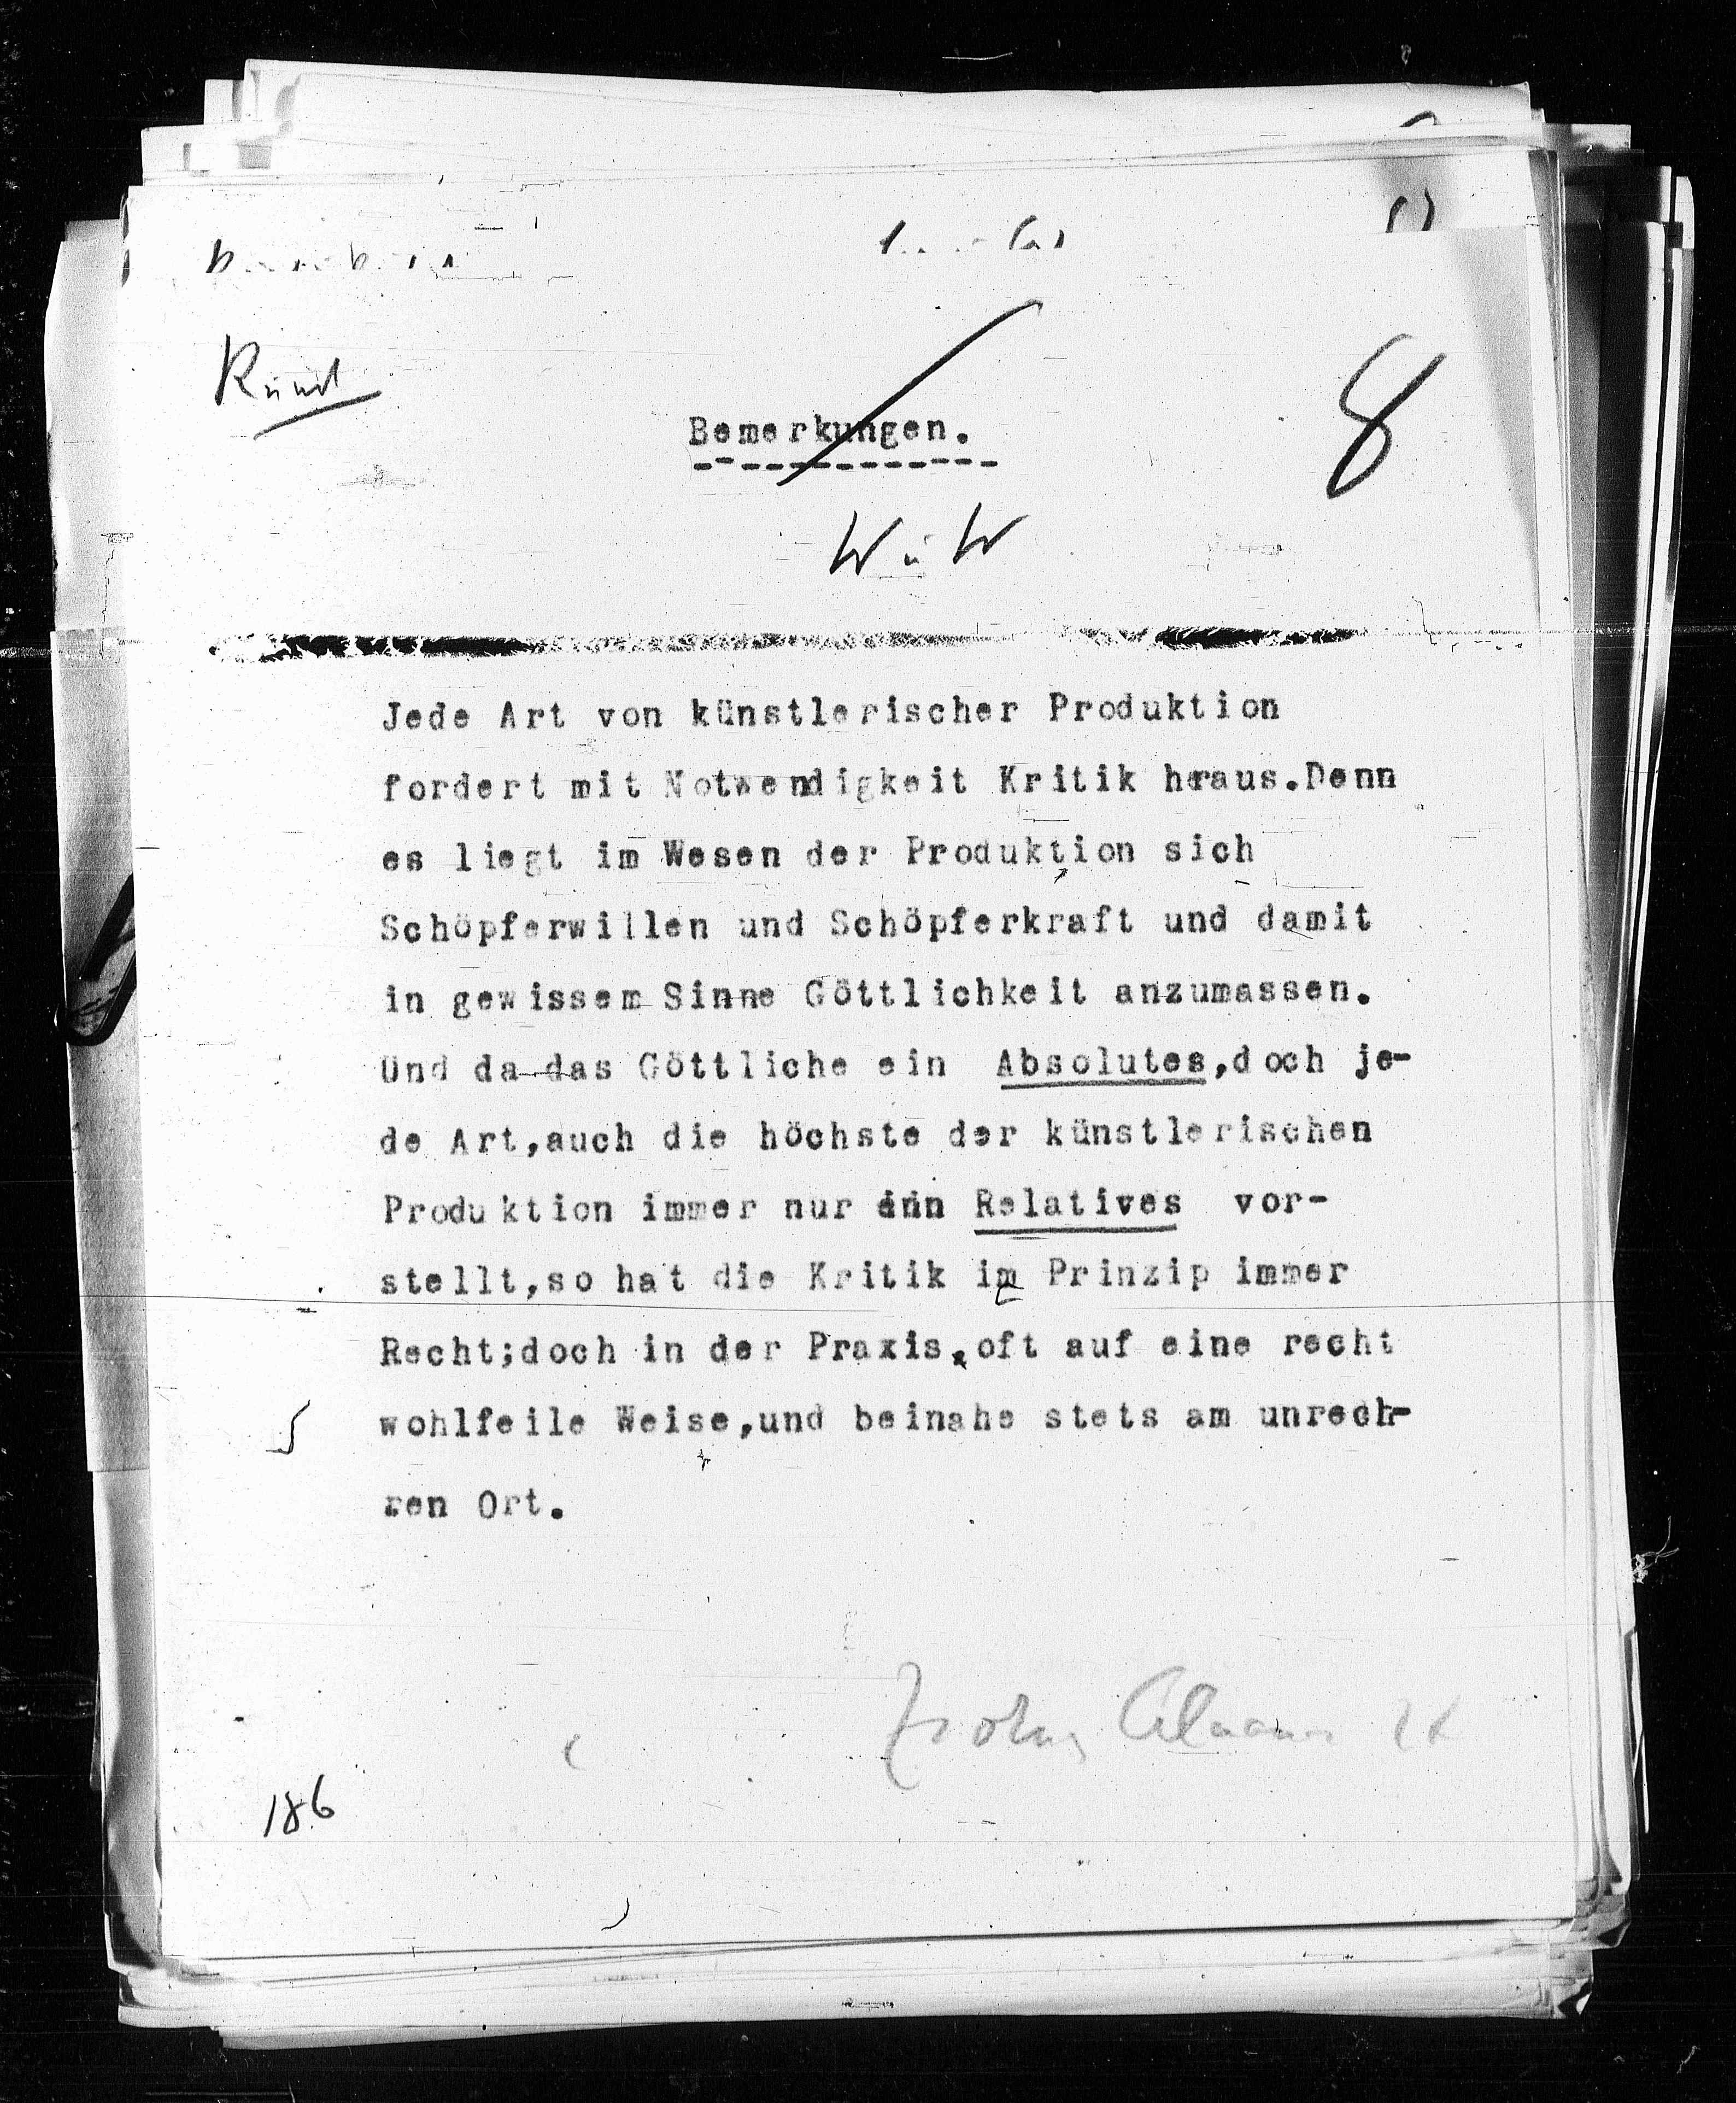 Kunst
8
Bemerkungen.
W ü W
Jede Art von künstlerischer Produktion
fordert mit Notwendigkeit Kritik heraus.Denn
es liegt im Wesen der Produktion sich
Schöpferwillen und Schöpferkraft und damit
in gewissem Sinne Göttlichkeit anzumassen.
Und da das Göttliche ein Absolutes,doch je-
de Art,auch die höchste der künstlerischen
Produktion immer nur ein Relatives vor-
stellt,so hat die Kritik im Prinzip immer
Recht;doch in der Praxis,oft auf eine recht
wohlfeile Weise,und beinahe stets am unrech-
ren Ort.
186